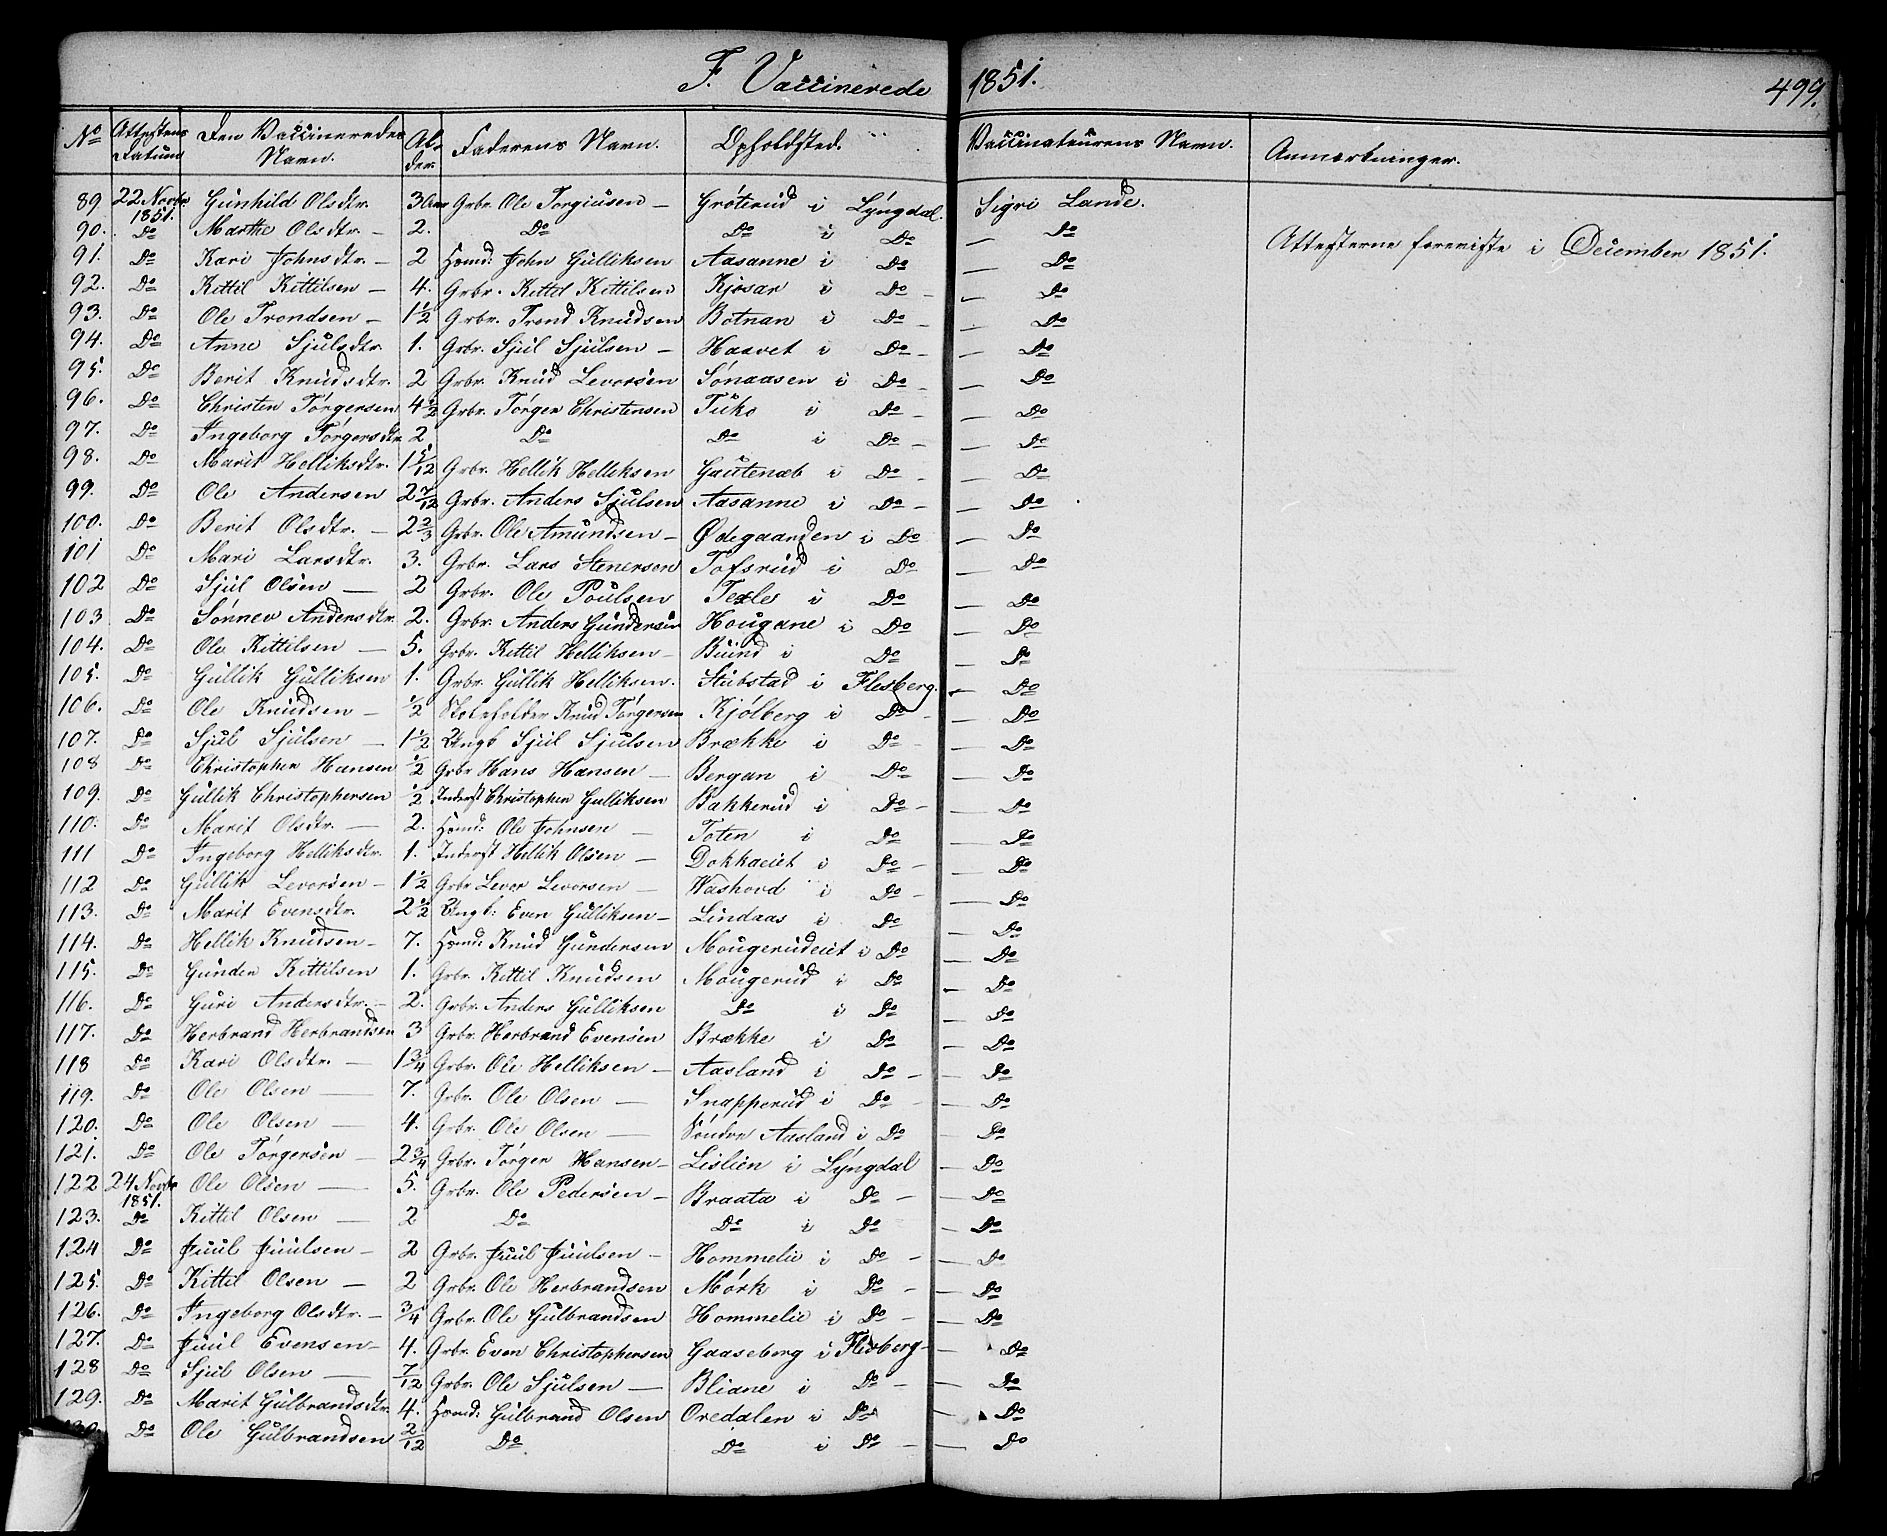 F. Vaccinerede 1851. 499.
No Attestens Datum Den Vaccineredes Navn. Alder. Faderens Navn. Opholdsted. Vaccinateurens Navn. Anmærkninger.
89 22 Novbr 1851. Gunhild Olsdtr. 3 Aar Grbr. Ole Torgiusen — Gróterud i Lyngdal. Sigri Lande.
90. Do Marthe Olsdtr. — 2. Do Do i Do — Do
Attesterne foreviste i December 1851.
91. Do Kari Johnsdtr. — 2 Hsmd: John Gulliksen Aasanne i Do — Do
92. Do Kittil Kittilsen — 4. Grbr. Kittil Kittilsen Kjosar i Do — — Do
93. Do Ole Trondsen — 1½ Grbr. Trond Knudsen Botnan i Do — — Do
94. Do Anne Sjulsdtr. 1. Grbr. Sjul Sjulsen — Hasvet i Do — — Do
95. Do Berit Knudsdtr. 2 Grbr. Knud Levorsen Sónaasen i Do — — Do
96. Do Christen Tórgersen 4½ Grbr. Tórger Christensen Tuko i Do — — Do
97. Do Ingeborg Tórgersdtr 2 Do Do i Do — — Do
98. Do Marit Helliksdtr. 1 5/12 Grbr. Hellik Helliksen Gautenæb i Do — — Do
99. Do Ole Andersen 2 7/12 Grbr. Anders Sjulsen Aasanne i Do — — Do
100. Do Berit Olsdtr. — 2 2/3 Grbr. Ole Amundsen — Ødegaarden i Do — Do
101 Do Mari Larsdtr. 3. Grbr. Lars Stenersen Tofsrud i Do — Do
102 Do Sjul Olsen — 2 Grbr. Ole Poulsen Texle i Do — Do
103 Do Sónnev Andersdtr. 2. Grbr. Anders Gundersen Hougane i Do — Do
104. Do Ole Kittilsen — 5. Grbr. Kittil Helliksen — Buind i Do — Do
105. Do Gullik Gulliksen 1. Grbr. Gullik Helliksen. Stubstad i Flesberg. — Do
106. Do Ole Knudsen — ½ Skoleholder Knud Tórgersen Kjólberg i Do — — Do
107. Do Sjul Sjulsen — 1½ Ungk Sjul Sjulsen Brække i Do — — Do
108 Do Christopher Hansen ½ Grbr Hans Hansen — Bergan i Do — Do
109. Do Gullik Christophersen ½ Inderst Christopher Gulliksen Bakkerud i Do — — Do
110. Do Marit Olsdtr. — 2. Hsmd: Ole Johnsen — Toten i Do — Do
111 Do Ingeborg Helliksdtr. 1. Inderst Hellik Olsen — Dokkaeiet i Do — — Do
112 Do Gullik Levorsen — 1½ Grbr Levor Levorsen — Vashovd i Do — — Do
113. Do Marit Evensdtr. 2½ Ungk: Even Gulliksen — Lindaas i Do — Do
114. Do Hellik Knudsen — 7. Hsmd: Knud Gundersen Mougerudeiet i Do — Do
115. Do Gunder Kittilsen 1. Grbr. Kittil Knudsen Mougerud i Do — Do
116. Do Guri Andersdtr. — 2. Grbr. Anders Gulliksen Do i Do — Do
117. Do Herbrand Herbrandsen 3 Grbr. Herbrand Evensen Brække i Do — Do
118 Do Kari Olsdtr. — 1¾ Grbr. Ole Helliksen — Aasland i Do — — Do
119. Do Ole Olsen — 7. Grbr. Ole Olsen — Snapperud i Do — — Do
120. Do Ole Olsen — 4. Grbr. Ole Olsen — Sóndre Aasland i Do — Do
121. Do Ole Tórgersen — 2¾ Grbr. Tórger Hansen — Lislien i Lyngdal — Do
122 24 Novbr 1851. Ole Olsen — 5. Grbr. Ole Pedersen — Braata i Do — — Do
123. Do Kittil Olsen — 2 Do Do i Do — Do
124 Do Juul Juulsen — 2 Grbr. Juul Juulsen — Hommelie i Do — — Do
125. Do Kittil Olsen — 2 Grbr. Ole Herbrandsen Mórk i Do — — Do
126. Do Ingeborg Olsdtr. — ¾ Grbr. Ole Gulbrandsen Hommelie i Do — — Do
127. Do Juul Evensen — 4. Grbr. Even Christophersen Gaaseberg i Flesberg — — Do
128 Do Sjul Olsen — 7/12 Grbr. Ole Sjulsen — Bliane i Do — — Do
129. Do Marit Gulbrandsdtr. 4. Hsmd: Gulbrand Olsen Oredalen i Do — Do
130. Do Ole Gulbrandsen 2/12 Do Do i Do — — Do